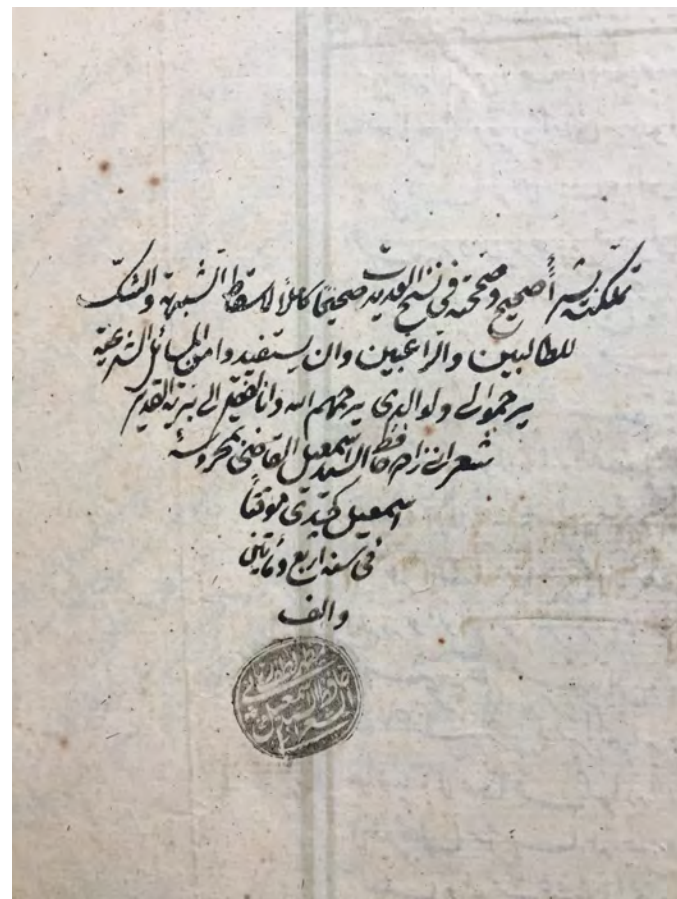 تملكته بشراء صحيح وصححته في نسخ العديدة صحيحا كاملا لاسقاط الشبهة والشك
للطالبين والراغبين وان يستفيدوا من المسائل الشرعية
يرحموا لي ولوالدي يرحمهم الله وانا الفقير الى ربه القدير
شعرانى زاده حافظ السيد اسمعيل القاضى بمحروسة
اسمعيل كچيدى موقتا
فى سنه اربع ومأتين
والف